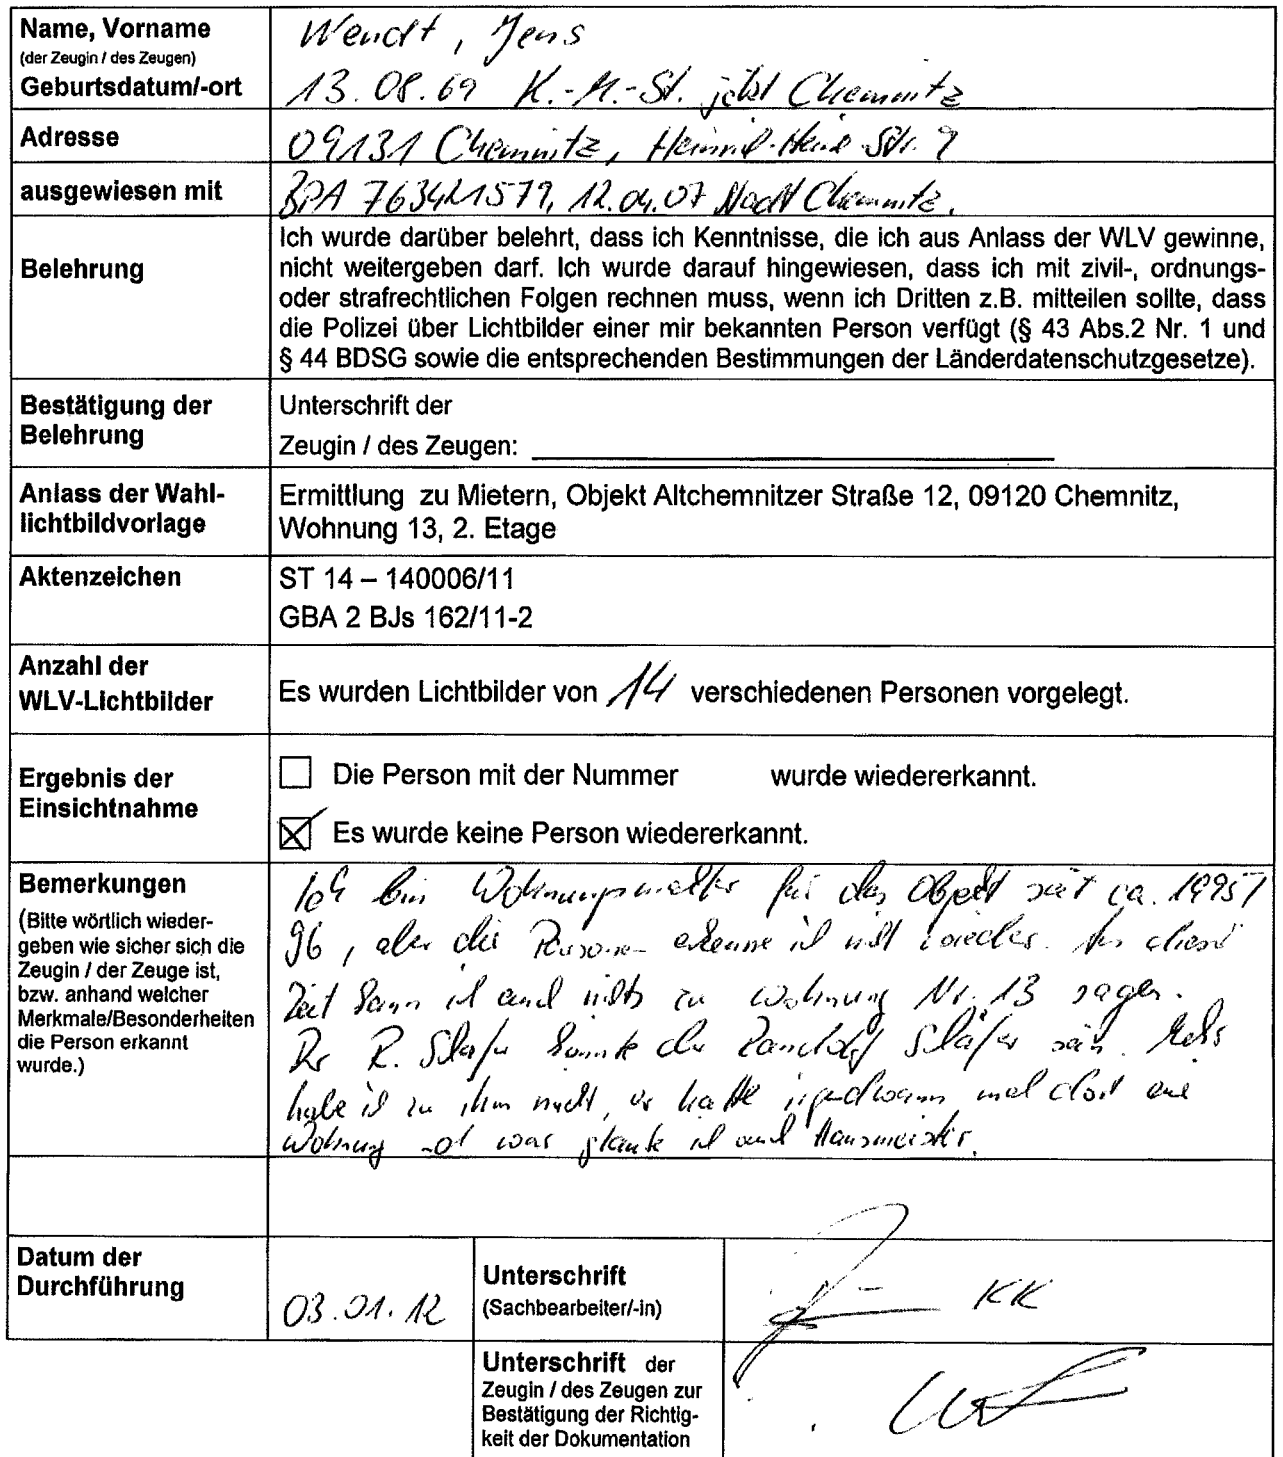 Name, Vorname
(der Zeugin / des Zeugen)
Geburtsdatum/-ort
Wendt, Jens
13.08.69 K.-M.-St. jetzt Chemnitz
Adresse
09131 Chemnitz, Heinrich-Heine-Str. 9
ausgewiesen mit
BPA 763421579, 12.04.07 Chemnitz.
Belehrung
Ich wurde darüber belehrt, dass ich Kenntnisse, die ich aus Anlass der WLV gewinne,
nicht weitergeben darf. Ich wurde darauf hingewiesen, dass ich mit zivil-, ordnungs-
oder strafrechtlichen Folgen rechnen muss, wenn ich Dritten z.B. mitteilen sollte, dass
die Polizei über Lichtbilder einer mir bekannten Person verfügt (§ 43 Abs.2 Nr. 1 und
§ 44 BDSG sowie die entsprechenden Bestimmungen der Länderdatenschutzgesetze).
Bestätigung der
Belehrung
Unterschrift der
Zeugin / des Zeugen:
Anlass der Wahl-
lichtbildvorlage
Ermittlung zu Mietern, Objekt Altchemnitzer Straße 12, 09120 Chemnitz,
Wohnung 13, 2. Etage
Aktenzeichen
ST 14 – 140006/11
GBA 2 BJs 162/11-2
Anzahl der
WLV-Lichtbilder
Es wurden Lichtbilder von 14 verschiedenen Personen vorgelegt.
Ergebnis der
Einsichtnahme
Die Person mit der Nummer wurde wiedererkannt.
Es wurde keine Person wiedererkannt.
Bemerkungen
(Bitte wörtlich wieder-
geben wie sicher sich die
Zeugin / der Zeuge ist,
bzw. anhand welcher
Merkmale/Besonderheiten
die Person erkannt
wurde.)
Ich bin Wohnungsmakler für das Objekt seit ca. 1995/
96, aber die Personen erkenne ich nicht wieder. Aus dieser
Zeit kann ich auch nichts zu Wohnung Nr. 13 sagen.
Der R. Schäfer könnte der Randolf Schäfer sein. Mehr
habe ich zu ihm nicht, er hatte irgendwann mal dort eine
Wohnung und war glaube ich auch Hausmeister.
Datum der
Durchführung
03.01.12
Unterschrift
(Sachbearbeiter/-in)
KK
Unterschrift der
Zeugin / des Zeugen zur
Bestätigung der Richtig-
keit der Dokumentation